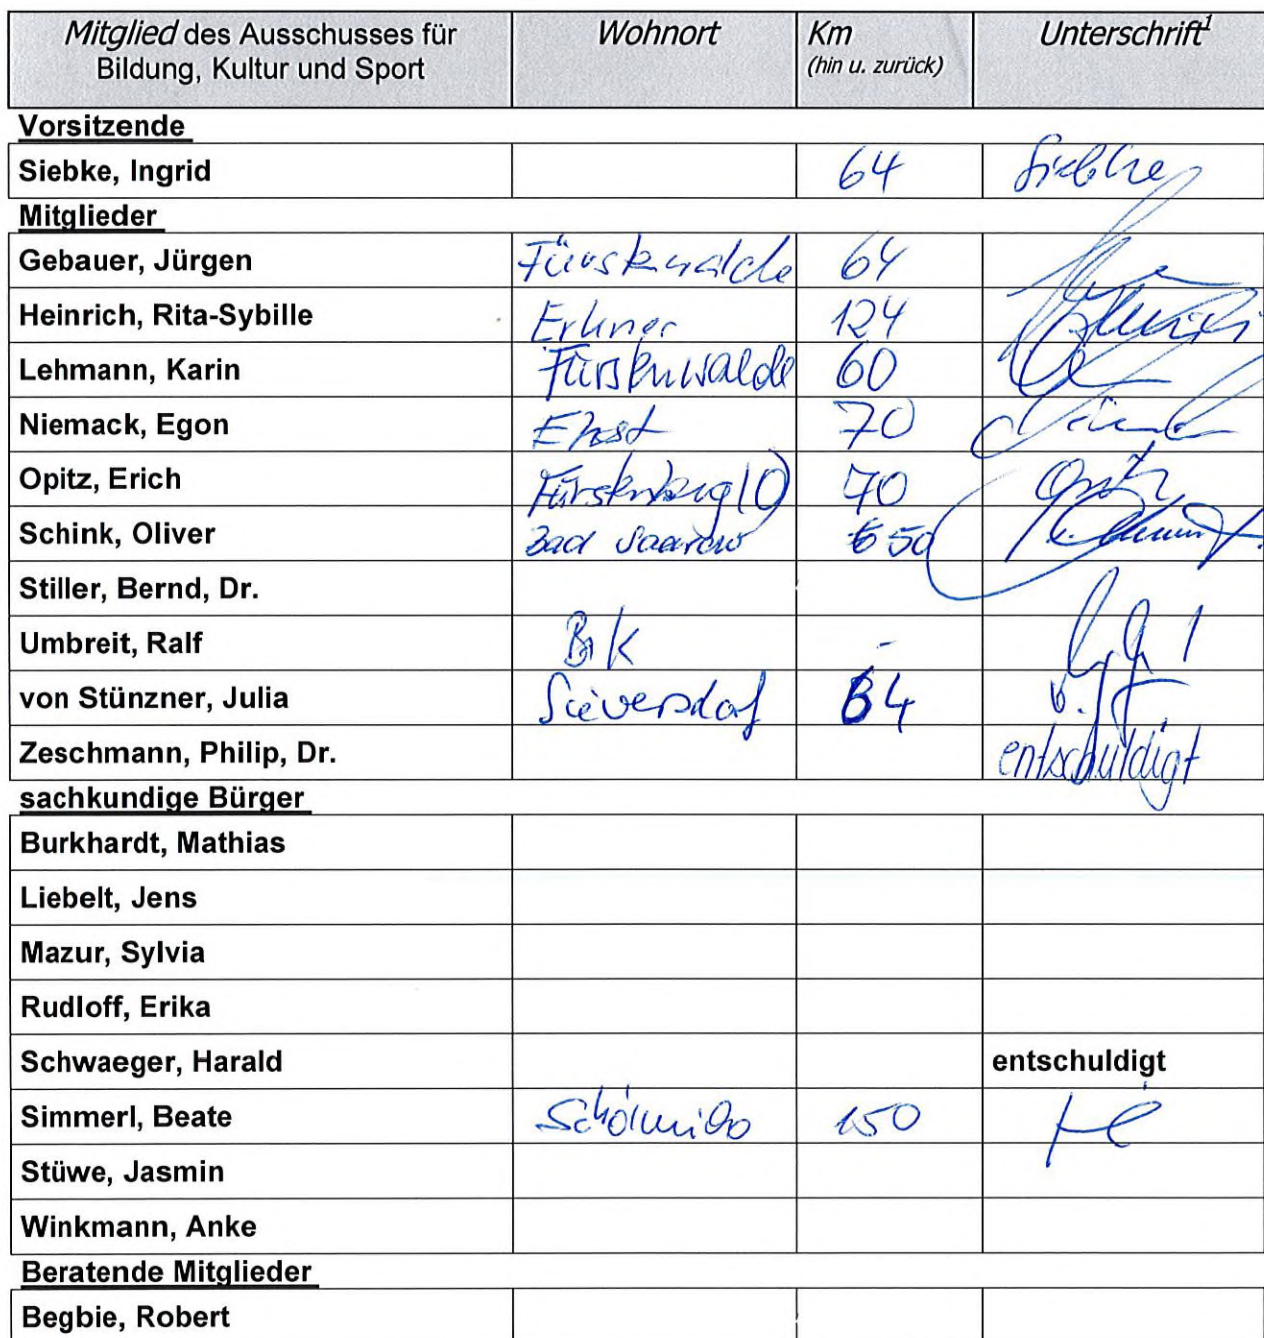 Mitglied des Ausschusses für Bildung, Kultur und Sport Wohnort Km (hin u. zurück) Unterschrift¹
Vorsitzende
Siebke, Ingrid 64 Siebke
Mitglieder
Gebauer, Jürgen Fürstenwalde 64
Heinrich, Rita-Sybille Erkner 124
Lehmann, Karin Fürstenwalde 60
Niemack, Egon 70
Opitz, Erich Fürstenberg (O) 70 Opitz
Schink, Oliver Bad Saarow 50
Stiller, Bernd, Dr.
Umbreit, Ralf -
von Stünzner, Julia Sieversdorf 64
Zeschmann, Philip, Dr. entschuldigt
sachkundige Bürger
Burkhardt, Mathias
Liebelt, Jens
Mazur, Sylvia
Rudloff, Erika
Schwaeger, Harald entschuldigt
Simmerl, Beate 150
Stüwe, Jasmin
Winkmann, Anke
Beratende Mitglieder
Begbie, Robert